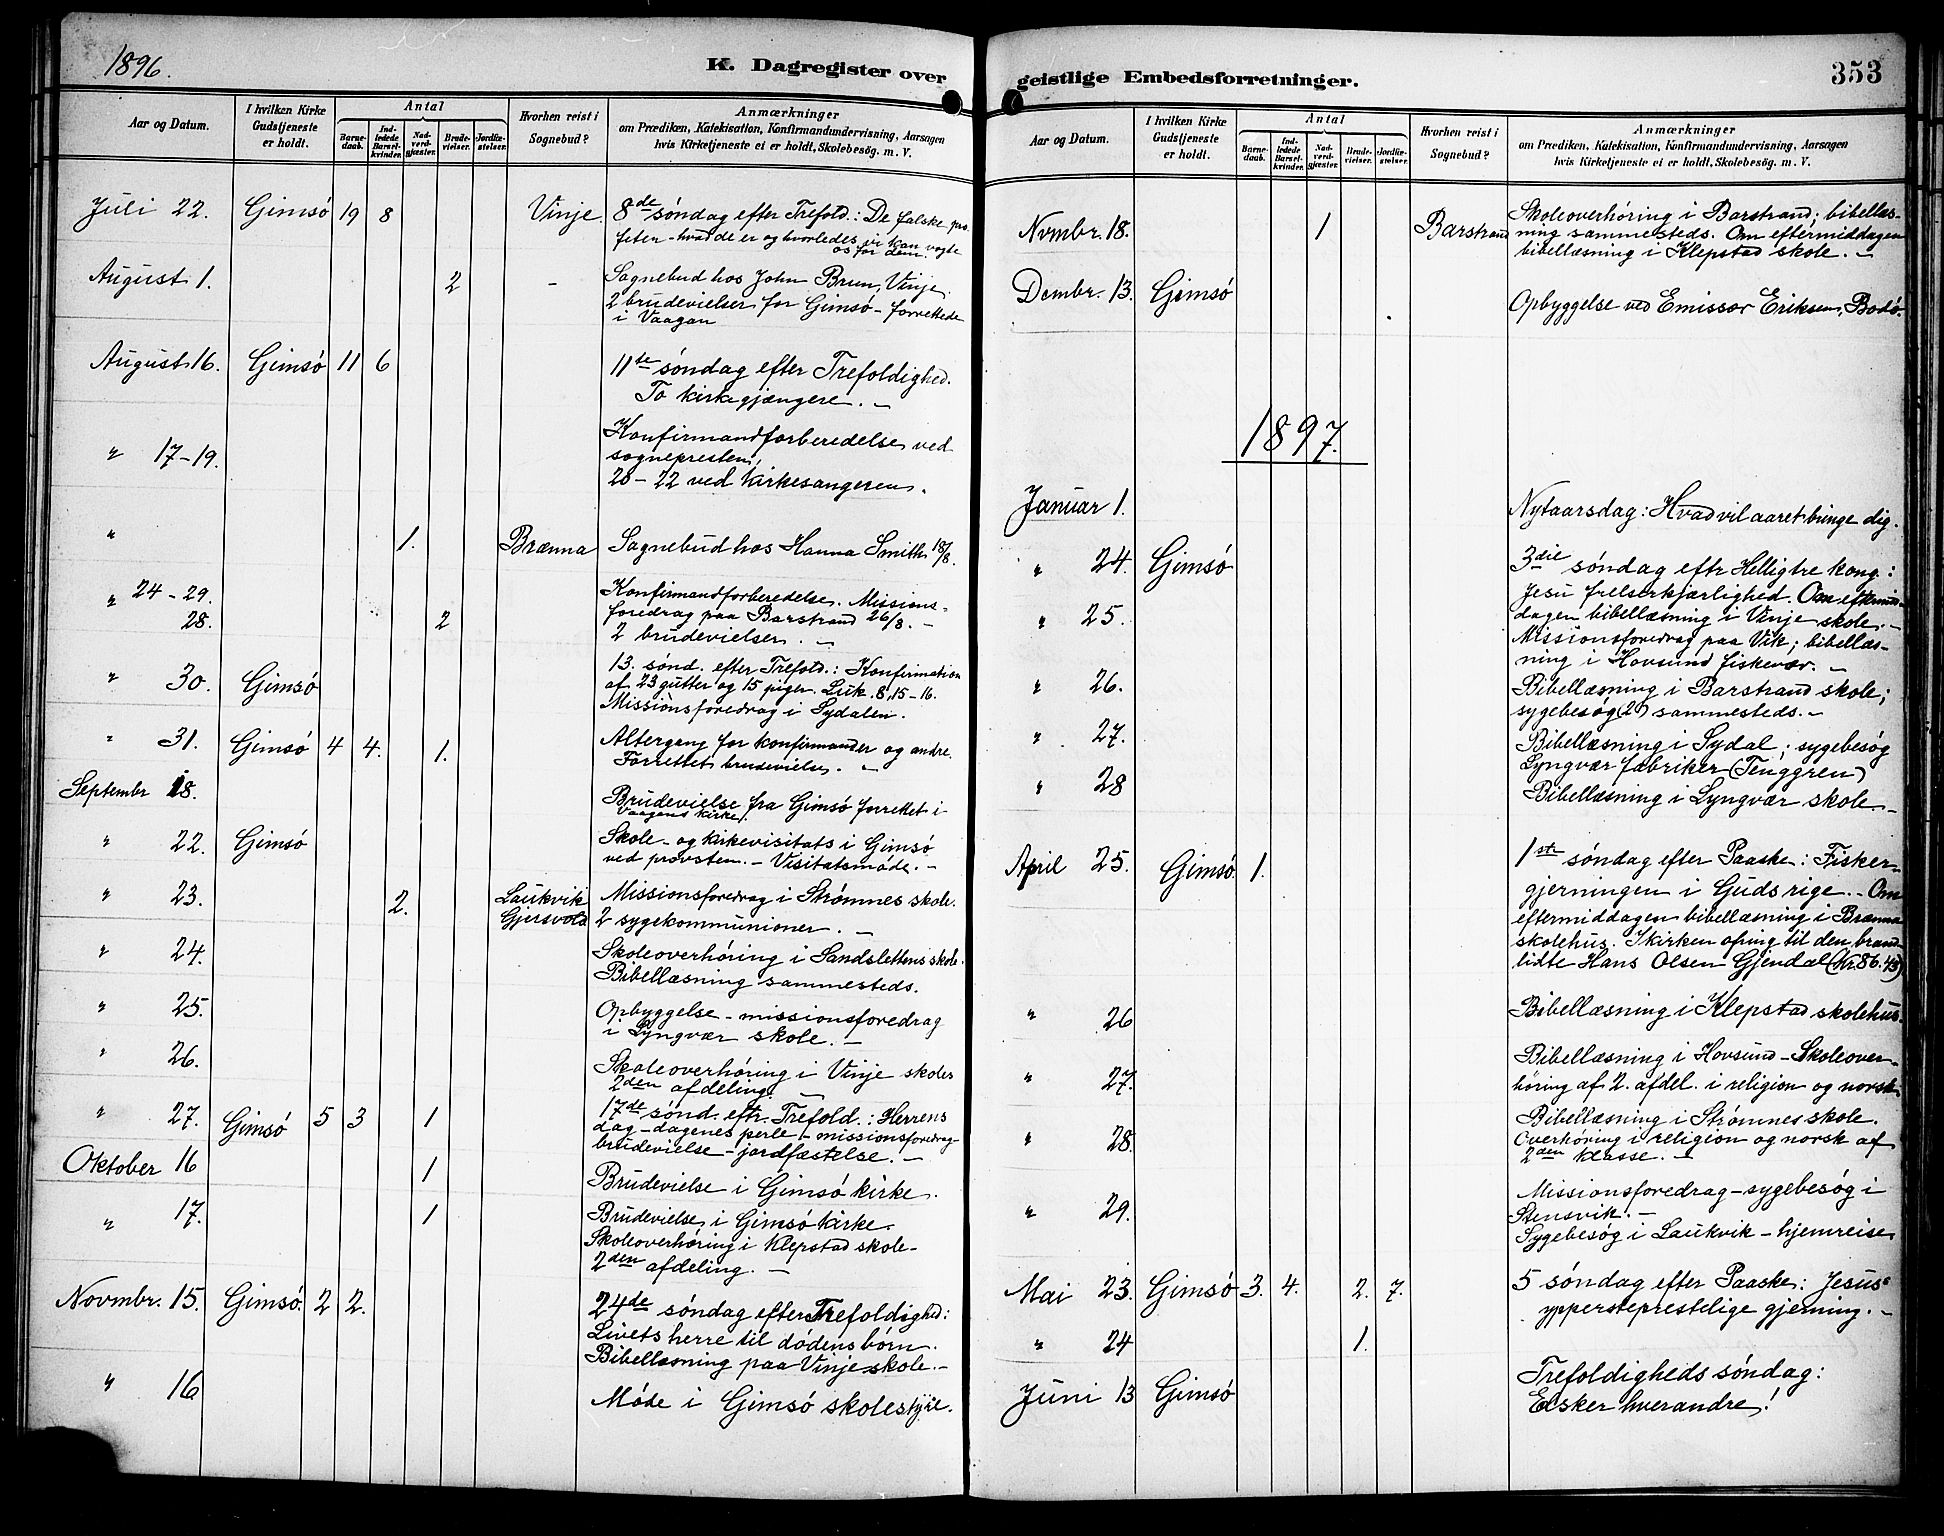 1896.
K. Dagregister over
Aar og Datum.
I hvilken Kirke Gudstjeneste er holdt.
Antal
Barne- daab.
Ind- ledede Barsel- kvinder.
Nad- verd- gjæster.
Brude- vielser.
Jordfæ- stelser.
Hvorhen reist i Sognebud?
Anmærkninger
om Prædiken, Katekisation, Konfirmandundervisning, Aarsagen
hvis Kirketjeneste ei er holdt, Skolebesøg. m. V.
Juli 22. Gimsö 19 8 Vinje 8de söndag efter Trefold.: De falske pro-
feter - hvad de er og hvorledes vi kan vogte
os for dem.
August 1. 2 - Sognebud hos John Brun, Vinje.
2 brudevielser for Gimsö - forrettede
i Vaagan
August 16. Gimsö 11 6 11te söndag efter Trefoldighed.
To kirkegjængere. -
" 17-19. Konfirmandforberedelse ved
sognepresten,
20-22 ved kirkesangeren.
" 1. Brænna Sognebud hos Hanna Smith 18/8.
" 24-29. Konfirmandforberedelse. Missions-
28. 2 foredrag paa Barstrand 26/8. -
2 brudevielser. -
" 30. Gimsö 13. sönd. efter Trefold.: Konfirmation
af 23 gutter og 15 piger. Luk. 8,15-16.
Missionsforedrag i Sydalen.
" 31. Gimsö 4 4. 1. Altergang for konfirmander og andre.
Forrettet brudevielse. -
Septembr 18. Brudevielse fra Gimsö forrettet i
Vaagens kirke.
" 22. Gimsö Skole- og kirkevisitats i Gimsö
ved provsten. - Visitatsmöde. -
" 23. 2. Laukvik Missionsforedrag i Strömnes skole.
Gjersvold 2 sygekommunioner. -
" 24. Skoleoverhöring i Sandslettens skole.
Bibellæsning sammesteds.
" 25. Opbyggelse - missionsforedrag
i Lyngvær skole. -
" 26. Skoleoverhöring i Vinje skoles
2den afdeling.
" 27. Gimsö 5 3 1 17de sönd. eftr. Trefold.: Herrens
dag - dagenes perle - missionsforedrag
brudevielse - jordfæstelse. -
Oktober 16 1 Brudevielse i Gimsö kirke.
" 17. 1 Brudevielse i Gimsö kirke.
Skoleoverhöring i Klepstad skole -
2den afdeling. -
Novmbr. 15. Gimsö. 2 2. 24de söndag efter Trefoldighed:
Livets herre til dödens börn.
Bibellæsning paa Vinje skole. -
" 16 Möde i Gimsö skolestyre.
geistlige Embedsforretninger.
353
Aar og Datum.
I hvilken Kirke Gudstjeneste er holdt.
Antal
Barne- daab.
Ind- ledede Barsel- kvinder.
Nad- verd- gjæster.
Brude- vielser.
Jordfæ- stelser.
Hvorhen reist i Sognebud?
Anmærkninger
om Prædiken, Katekisation, Konfirmandundervisning, Aarsagen
hvis Kirketjeneste ei er holdt, Skolebesøg. m. V.
Novmbr. 18. 1 Barstrand Skoleoverhöring i Barstrand; bibellæs-
ning sammesteds. Om eftermiddagen
bibellæsning i Klepstad skole. -
Dembr. 13. Gimsö Opbyggelse ved Emissær Eriksen, Bodö.
1897.
Januar 1. Nytaarsdag: Hvad vil aaret bringe dig.
" 24. Gimsö 3die söndag eftr Helligtre kong:
Jesu frelserkjærlighed. Om eftermid-
dagen bibellæsning i Vinje skole. -
" 25. Missionsforedrag paa Vik; bibellæs-
ning i Hovsund fiskevær. -
" 26. Bibellæsning i Barstrand skole;
sygebesög (2) sammesteds. -
" 27. Bibellæsning i Sydal; sygebesög
Lyngvær fabriker (Tenggren)
" 28 Bibellæsning i Lyngvær skole. -
April 25. Gimsö 1. 1ste söndag efter Paaske: Fisker-
gjerningen i Guds rige. - Om
eftermiddagen bibellæsning i Brænna
skolehus. I kirken ofring til den brand-
lidte Hans Olsen Gjendal (Kr 86.43)
" 26 Bibellæsning i Klepstad skolehus.
" 27. Bibellæsning i Hovsund - Skoleover-
höring af 2. afdel. i religion og norsk.
" 28. Bibellæsning i Strömnes skole.
Overhöring i religion og norsk af
2den klasse. -
" 29. Missionsforedrag - sygebesög i
Stensvik. -
Sygebesög i Laukvik - hjemreise
Mai 23. Gimsö 3. 4. 2. 7. 5 söndag efter Paaske: Jesus'
ypperstepræstelige gjerning. -
" 24 1.
Juni 13 Gimsö Trefoldigheds söndag:
Elsker hverandre!